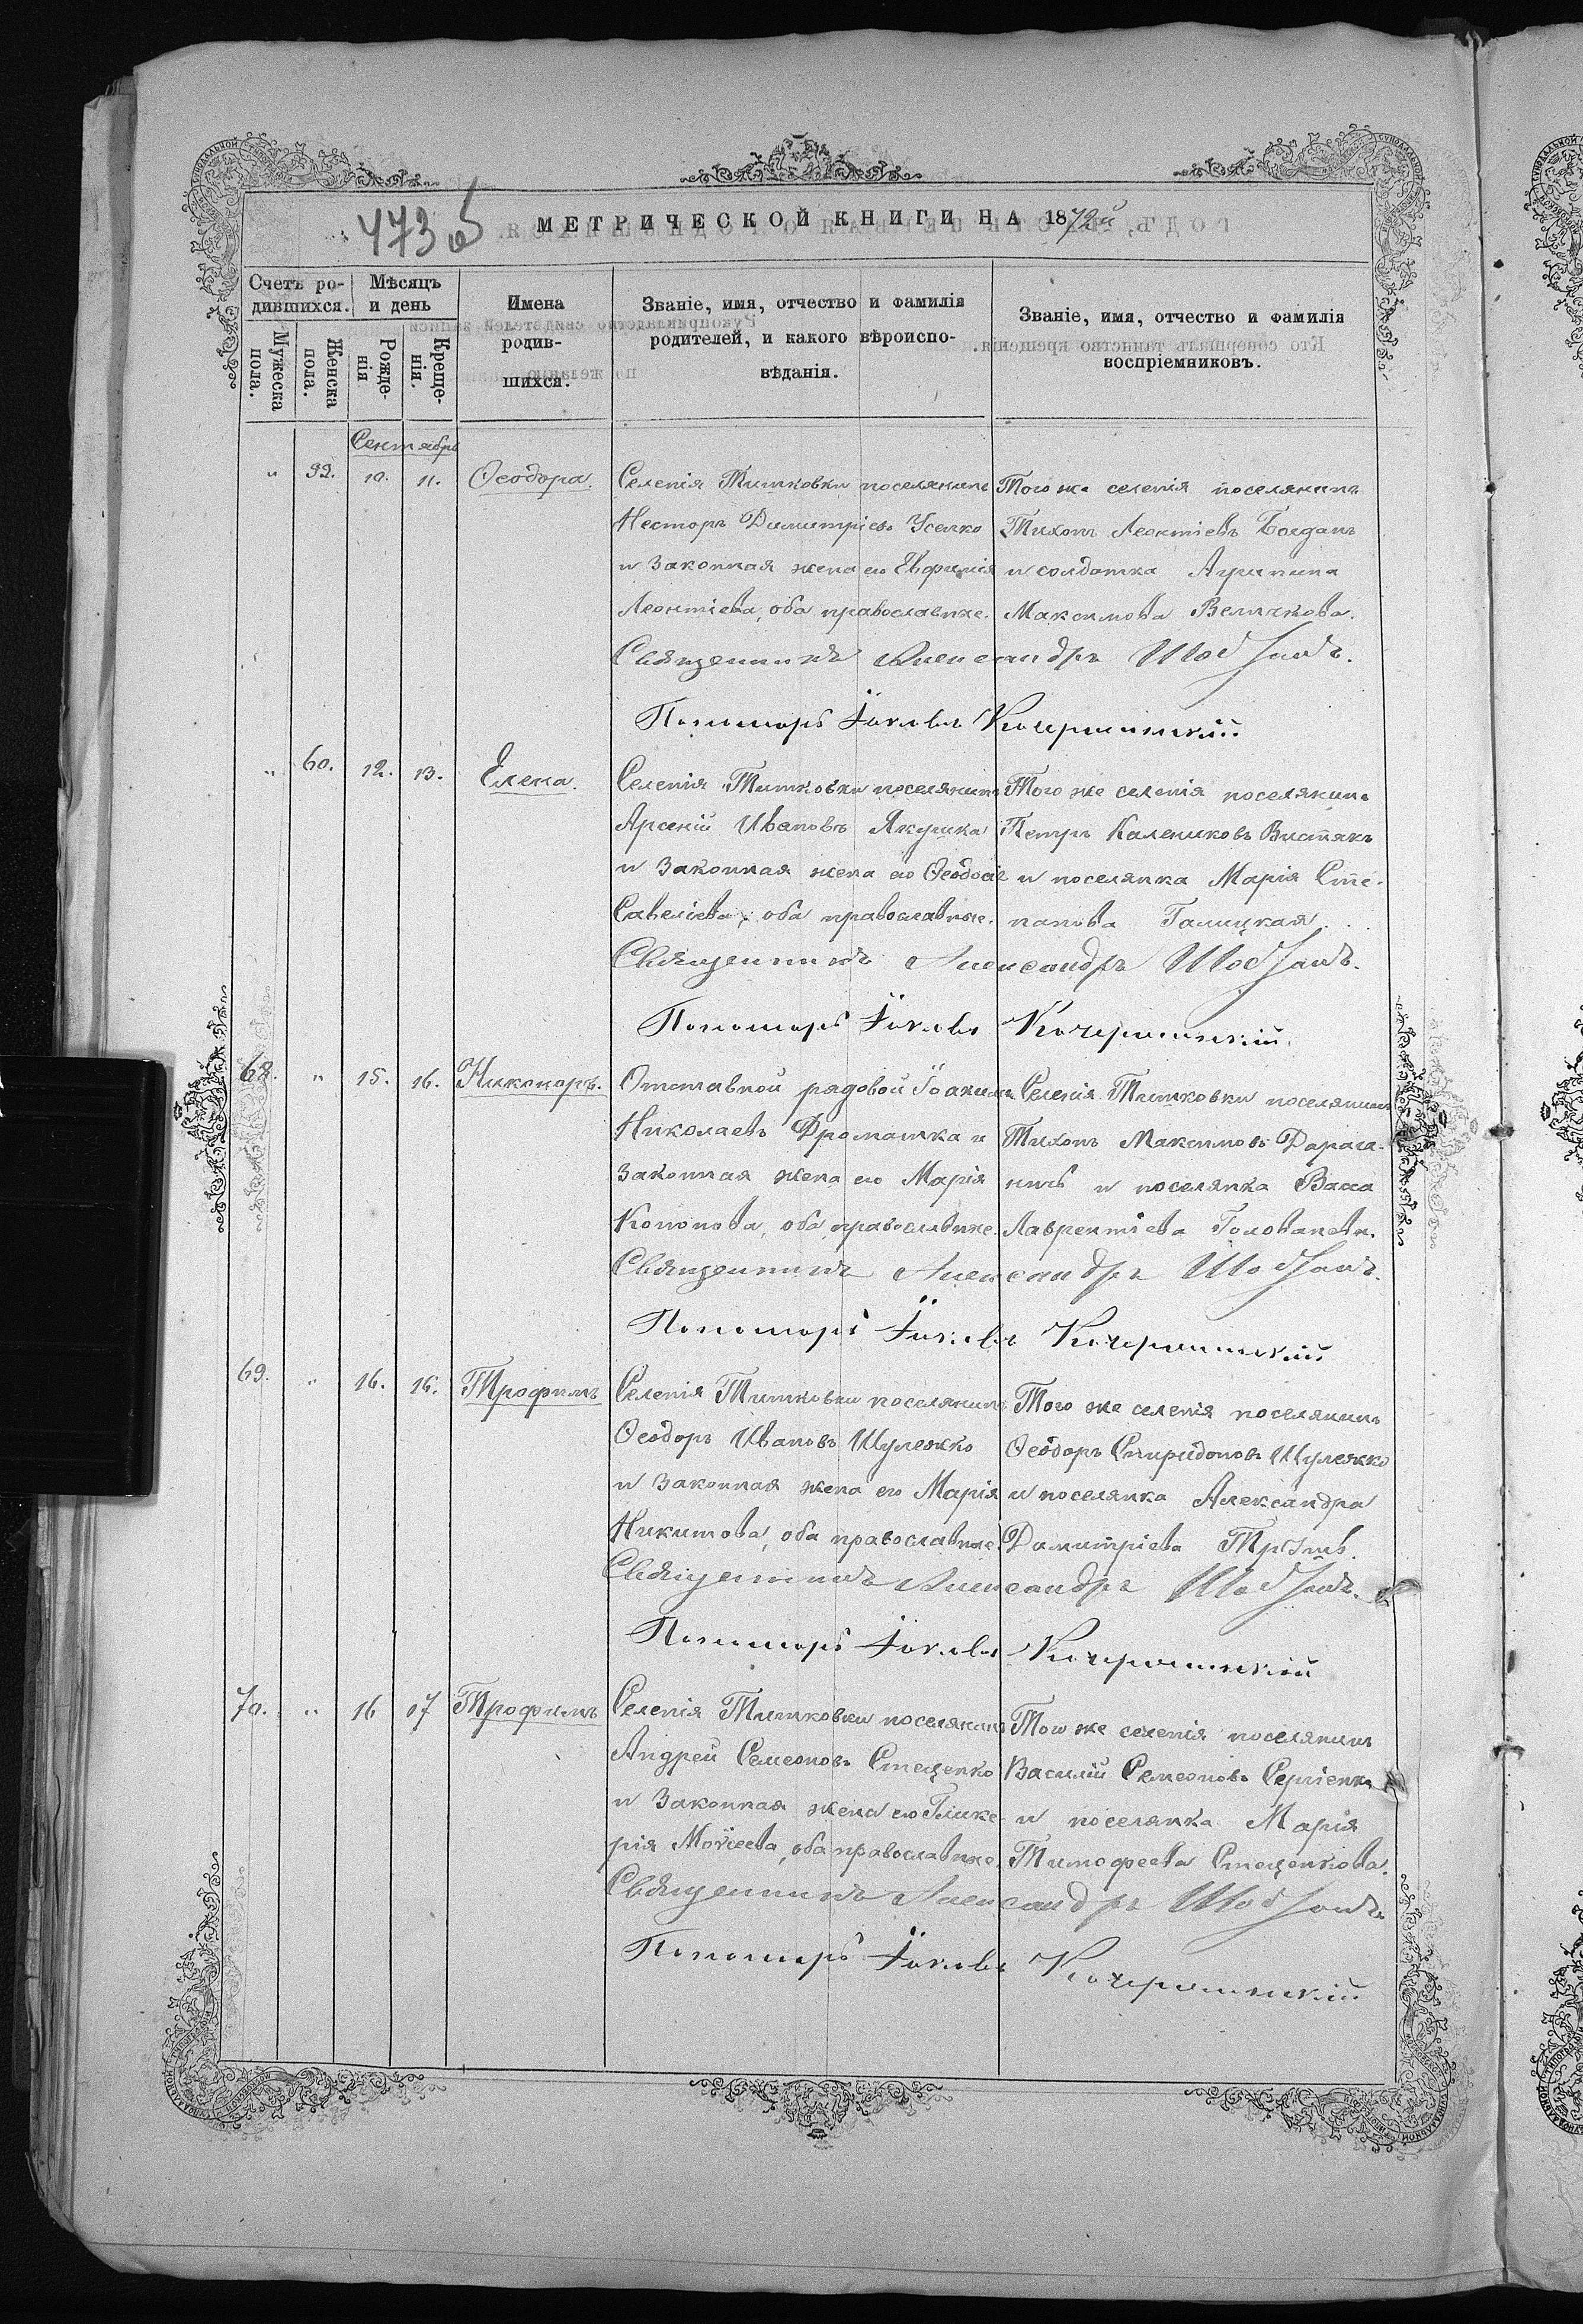 473 об
МЕТРИЧЕСКОЙ КНИГИ НА 1872й
Счетъ ро-
дившихся.
Мѣсяцъ
и день
Мужеска
пола.
Женска
пола.
Рожде-
нія
Креще-
нія.
Имена
родив-
шихся.
Званіе, имя, отчество и фамилія
родителей, и какого вѣроиспо-
вѣданія.
Званіе, имя, отчество и фамилія
воспріемниковъ.
Сентябрь
" 10. 11. Ѳеодора.
Селенія Титковки поселянинъ
Несторъ Димитріевъ Уселко
и законная жена его Евфимія
Леонтіева, оба православные.
Того же селенія поселянинъ
Тихонъ Леонтіевъ Богданъ
и солдатка Агрипина
Максимова
Священникъ Александръ
Пономарь Іаковъ
" 60. 12. 13. Елена.
Селенія Титковки поселянинъ
Арсеній Ивановъ Якушка
и законная жена его Ѳеодосія
Савеліева, оба православные.
Того же селенія поселянинъ
Петръ Калениковъ
и поселянка Марія Сте-
панова Галицкая.
Священникъ Александръ
Пономарь Іаковъ
68. " 15. 16. Никаноръ.
Отставной рядовой Іоакимъ
Николаевъ Дроматка и
законная жена его Марія
Кононова, оба православные.
Селенія Титковки поселянинъ
Тихонъ Максимовъ Дарага-
нъ и поселянка Васса
Лаврентіева
Священникъ Александръ
Пономарь Іаковъ
69. " 16. 16. Трофимъ
Селенія Титковки поселянинъ
Ѳеодоръ Ивановъ Шулежко
и законная жена его Марія
Никитова, оба православные.
Того же селенія поселянинъ
Ѳеодоръ Спиридоновъ Шулежко
и поселянка Александра
Димитріева
Священникъ Александръ
Пономарь Іаковъ
70. " 16 17 Трофимъ
Селенія Титковки поселянинъ
Андрей Семеоновъ Стеценко
и законная жена его Глике-
рія Моѵсеева, оба православные.
Того же селенія поселянинъ
Василій Семеоновъ Сергіенко
и поселянка Марія
Тимофеева Стеценкова.
Священникъ Александръ
Пономарь Іаковъ